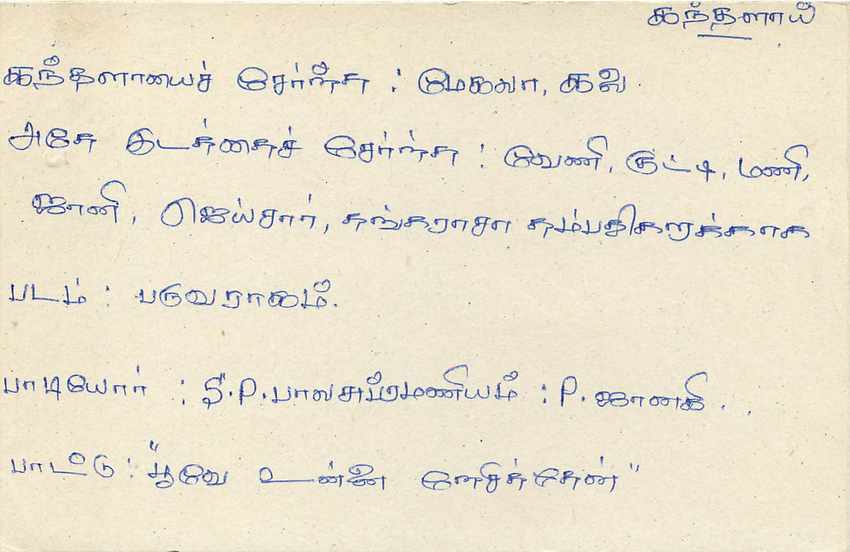 கந்தளாய்
கந்தளாயைச் சேர்ந்த : மேகலா, கலை
அதே இடத்தைச் சேர்ந்த : வேணி, குட்டி, மணி,
ஜானி, ஜெய்சார், தங்கராசா தம்பதிகளுக்காக
படம் : பருவராகம்.
பாடியோர் : S.P.பாலசுப்ரமணியம் : P. ஜானகி . .
பாட்டு : "பூவே உன்னை நேசித்தேன்"